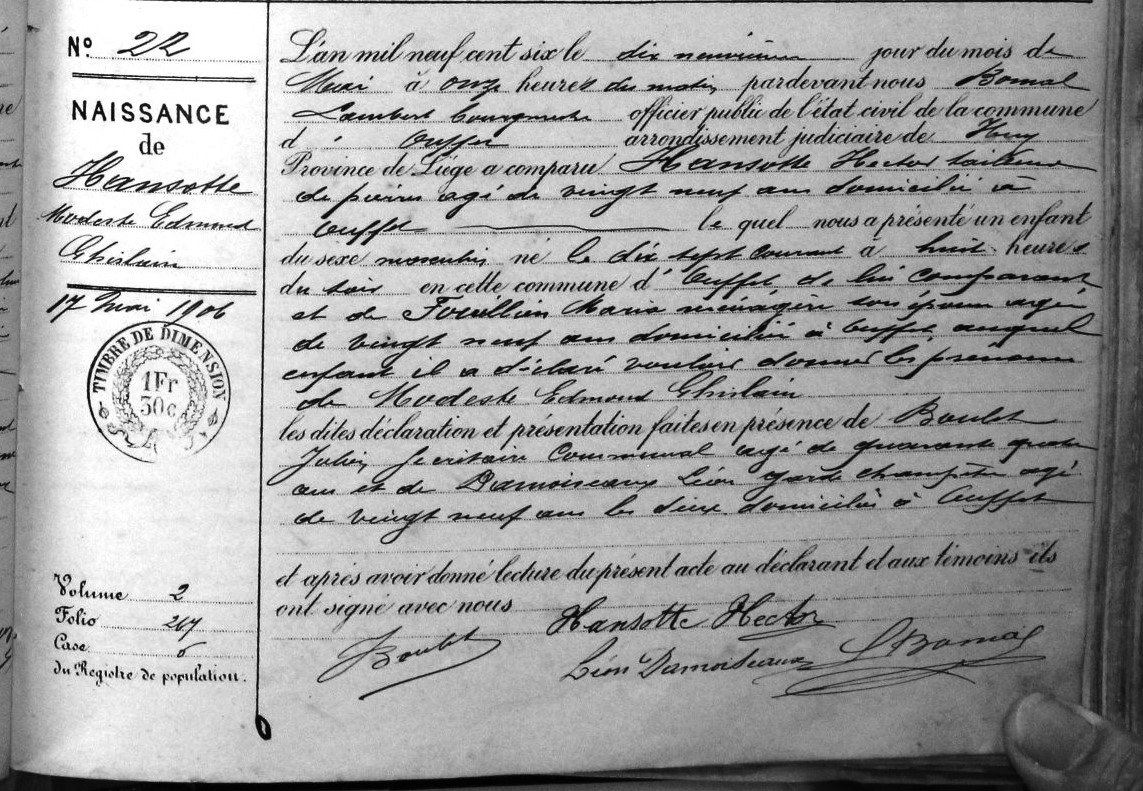 N° 22
NAISSANCE
de
Hansotte
Modeste Edmond
Ghislain
17 Mai 1906
TIMBRE DE DIMENSION
1Fr
30c
Volume 2
Folio 267
Case 6
du Registre de population.
L'an mil neuf cent six le dix neuvième jour du mois de
Mai à onze heures du matin, pardevant nous Bomal
Lambert bourgmestre officier public de l'état civil de la commune
d' Ouffet arrondissement judiciaire de Huy
Province de Liége a comparu Hansotte Hector tailleur
de pierres agé de vingt neuf ans domicilié à
Ouffet le quel nous a présenté un enfant
du sexe masculin, né le dix sept courant à huit heures
du soir en cette commune d' Ouffet, de lui comparant
et de Marie ménagère son épouse agée
de vingt neuf ans domiciliée à Ouffet, auquel
enfant il a déclaré vouloir donner les prénoms
de Modeste Edmond Ghislain
les dites déclaration et présentation faites en présence de Boulet
Julien, Secrétaire Communal agé de quarante quatre
ans et de Damoiseaux Léon garde champêtre agé
de vingt neuf ans les deux domiciliés à Ouffet
et après avoir donné lecture du présent acte au déclarant et aux témoins ils
ont signé avec nous
Hansotte Hector
JBoulet
Léon Damoiseaux
LBomal